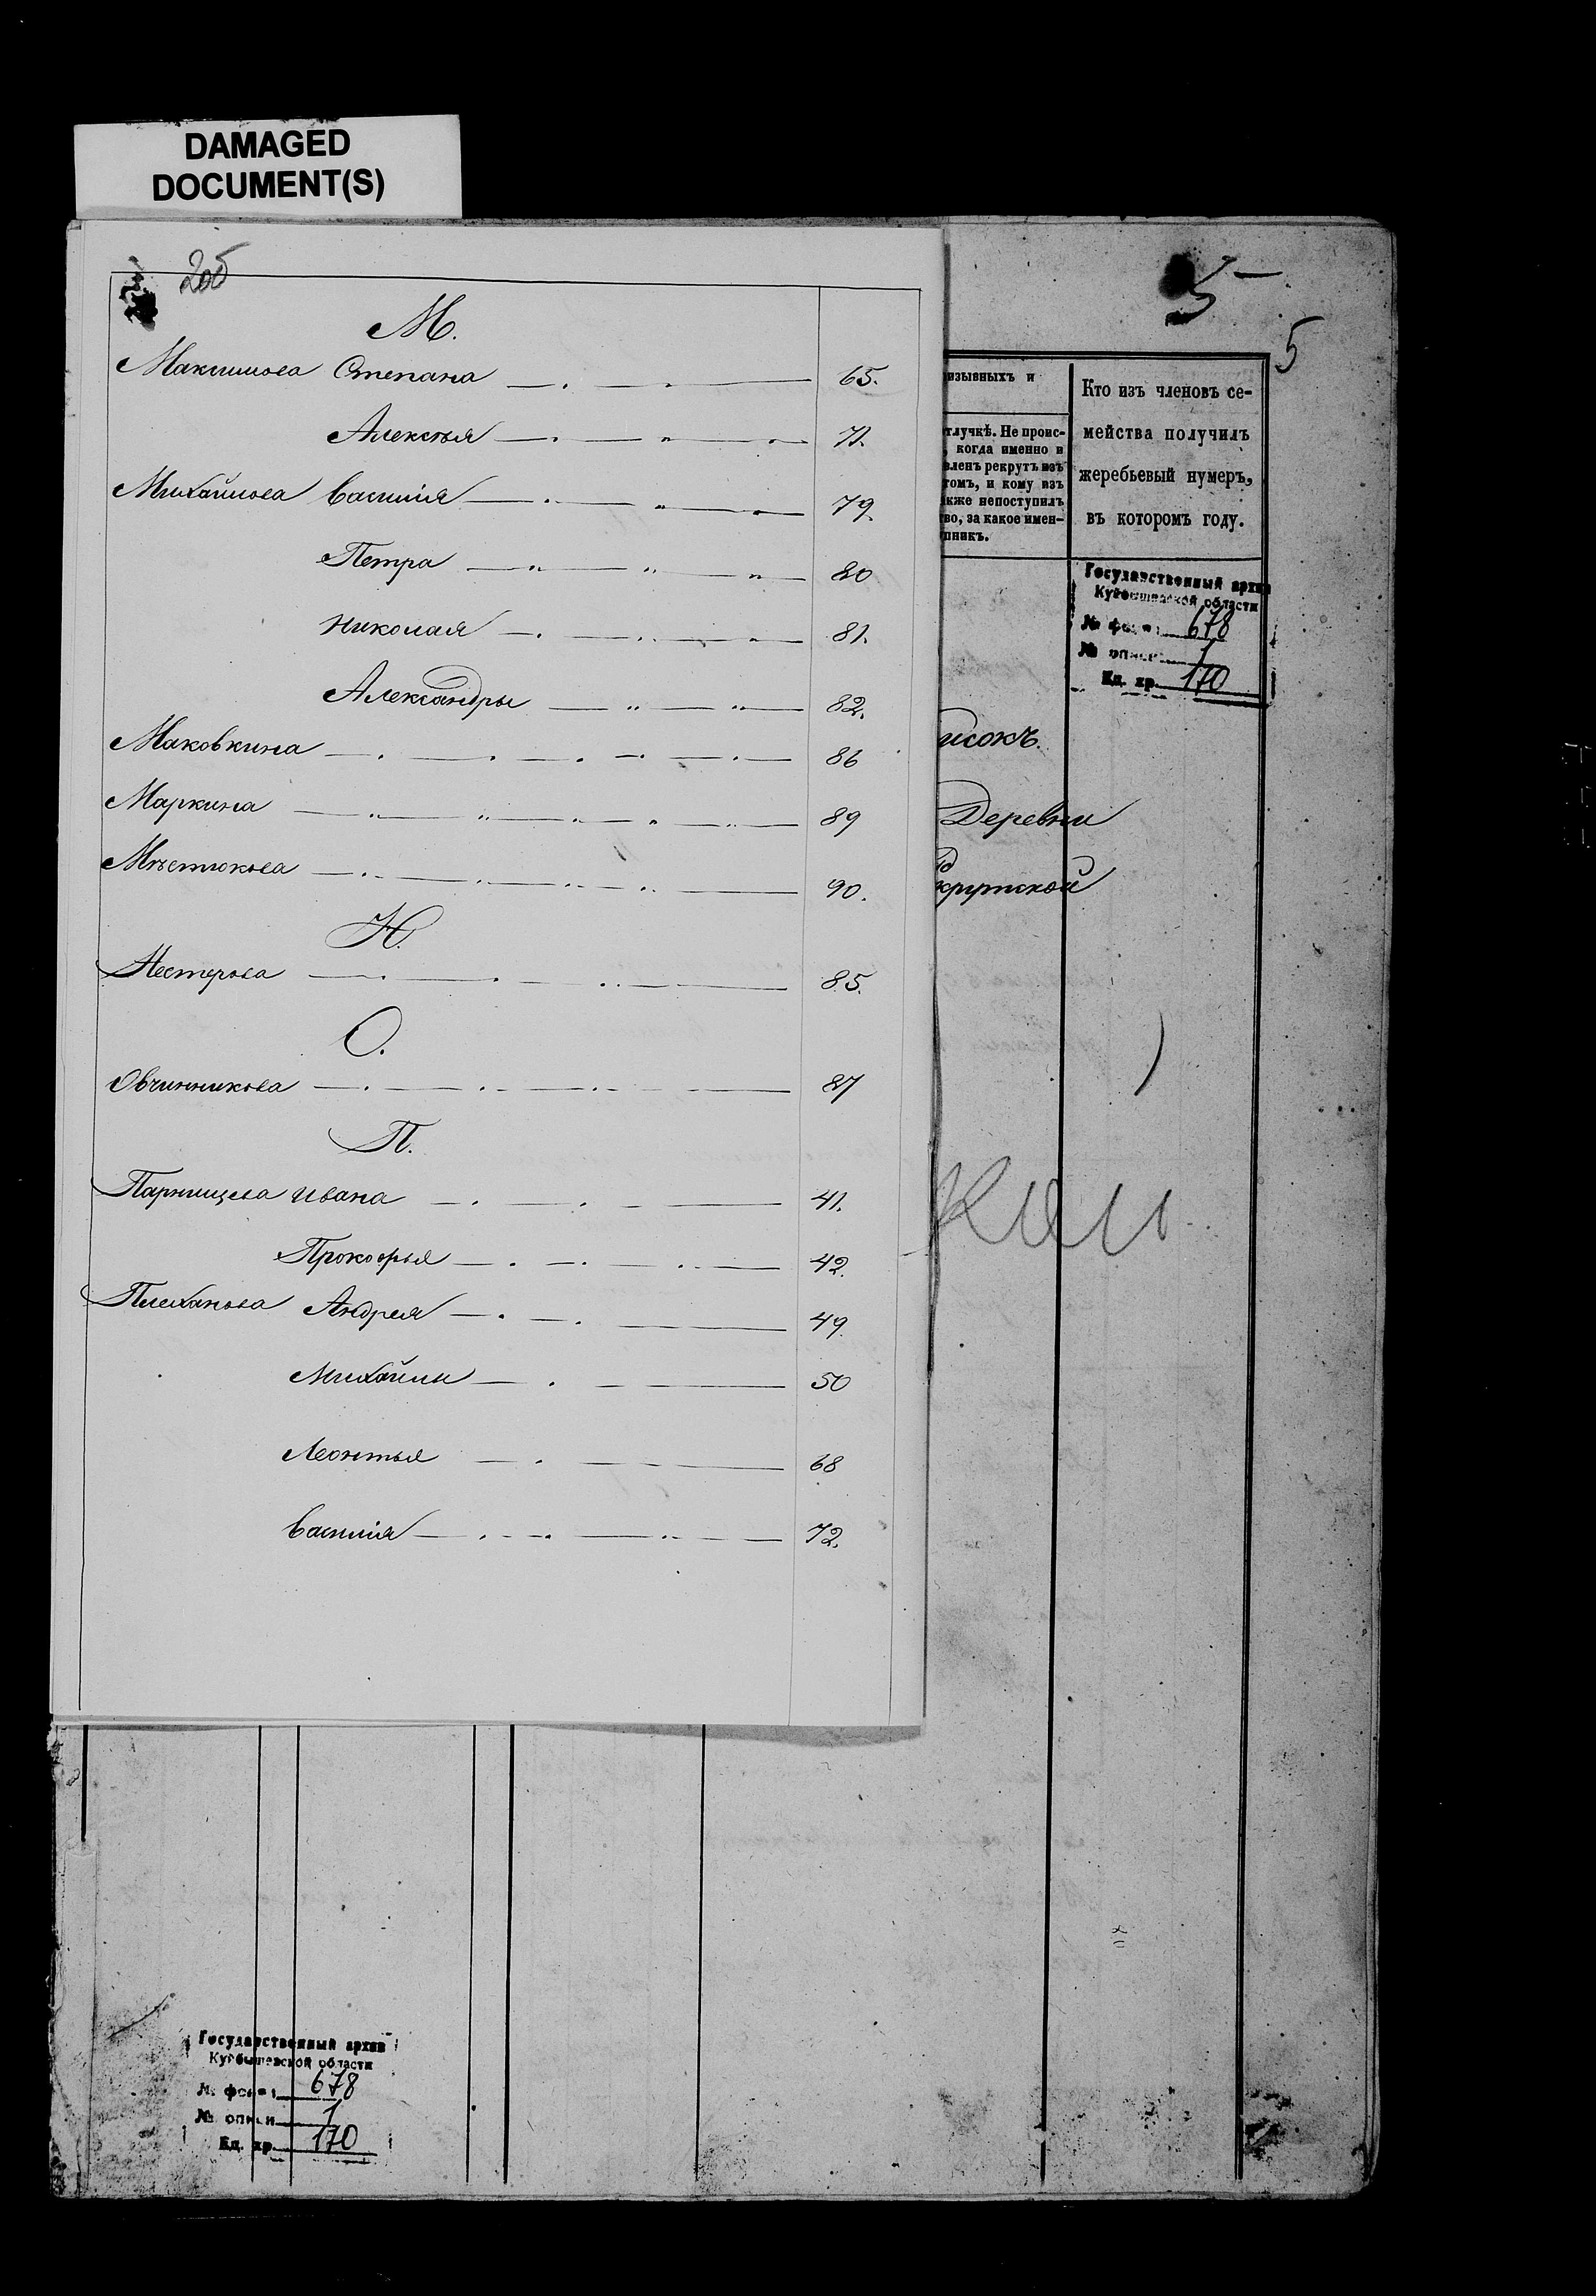 DAMAGED
DOCUMENT(S)
205
М.
Максимова Степана 65.
Алексѣя 71.
Михайлова Василія 79.
Петра 80
Николая 81.
Александры 82.
Маковкина 86
Маркина 89
Мѣстюкова 90.
Н.
Нестерова 85.
О.
Овчинникова 87
П.
Парнищева Ивана 41.
Прокофья 42.
Плеханова Андрея 49.
Михайлы 50
Леонтья 68
Василія 72.
5
5
изывныхъ и
тлучкѣ. Не проис-
, когда именно и
вленъ рекрутъ изъ
томъ, и кому изъ
кже непоступилъ
во, за какое имен-
пникъ.
Кто изъ членовъ се-
мейства получилъ
жеребьевый нумеръ,
въ которомъ году.
Государственный архив
Куйбышевской области
№ фонда 678
№ описи 1
Ед. хр. 170
исокъ.
Деревни
крутской
Государственный архив
Куйбышевской области
№ фонда 678
№ описи 1
Ед. хр. 170